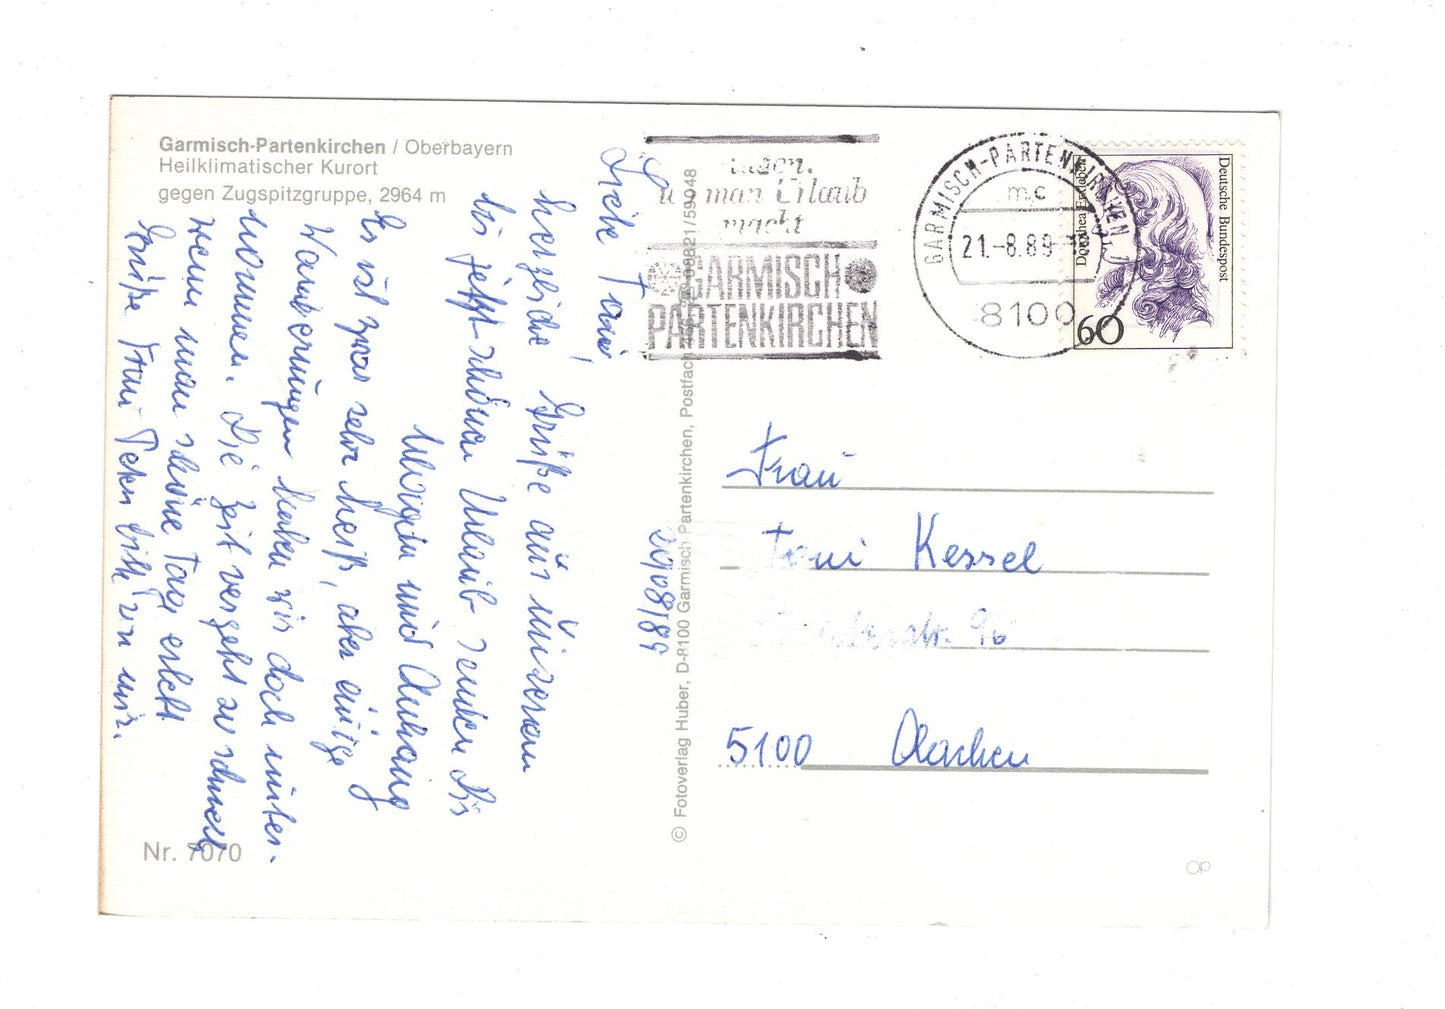 Garmisch-Partenkirchen / Oberbayern
Heilklimatischer Kurort
gegen Zugspitzgruppe, 2964 m
Liebe Toni,
herzliche Grüße aus unserem
bis jetzt schönen Urlaub senden Dir
und Anhang
Es ist zwar sehr heiß, aber einige
Wanderungen haben wir doch unter-
nommen. Die Zeit vergeht zu schnell
wenn man schöne Tage erlebt
Grüße Frau bitte von mir.
Nr. 7070
20/08/89
© Fotoverlag Huber, D-8100 Garmisch-Partenkirchen, Postfach 08821/59048
man Urlaub
macht
GARMISCH
PARTENKIRCHEN
GARMISCH-PARTENKIRCHEN 1
mc
21.-8.89
8100
Deutsche Bundespost
Dorothea Erxleben
60
Frau
Toni Kessel
str. 96
5100 Aachen